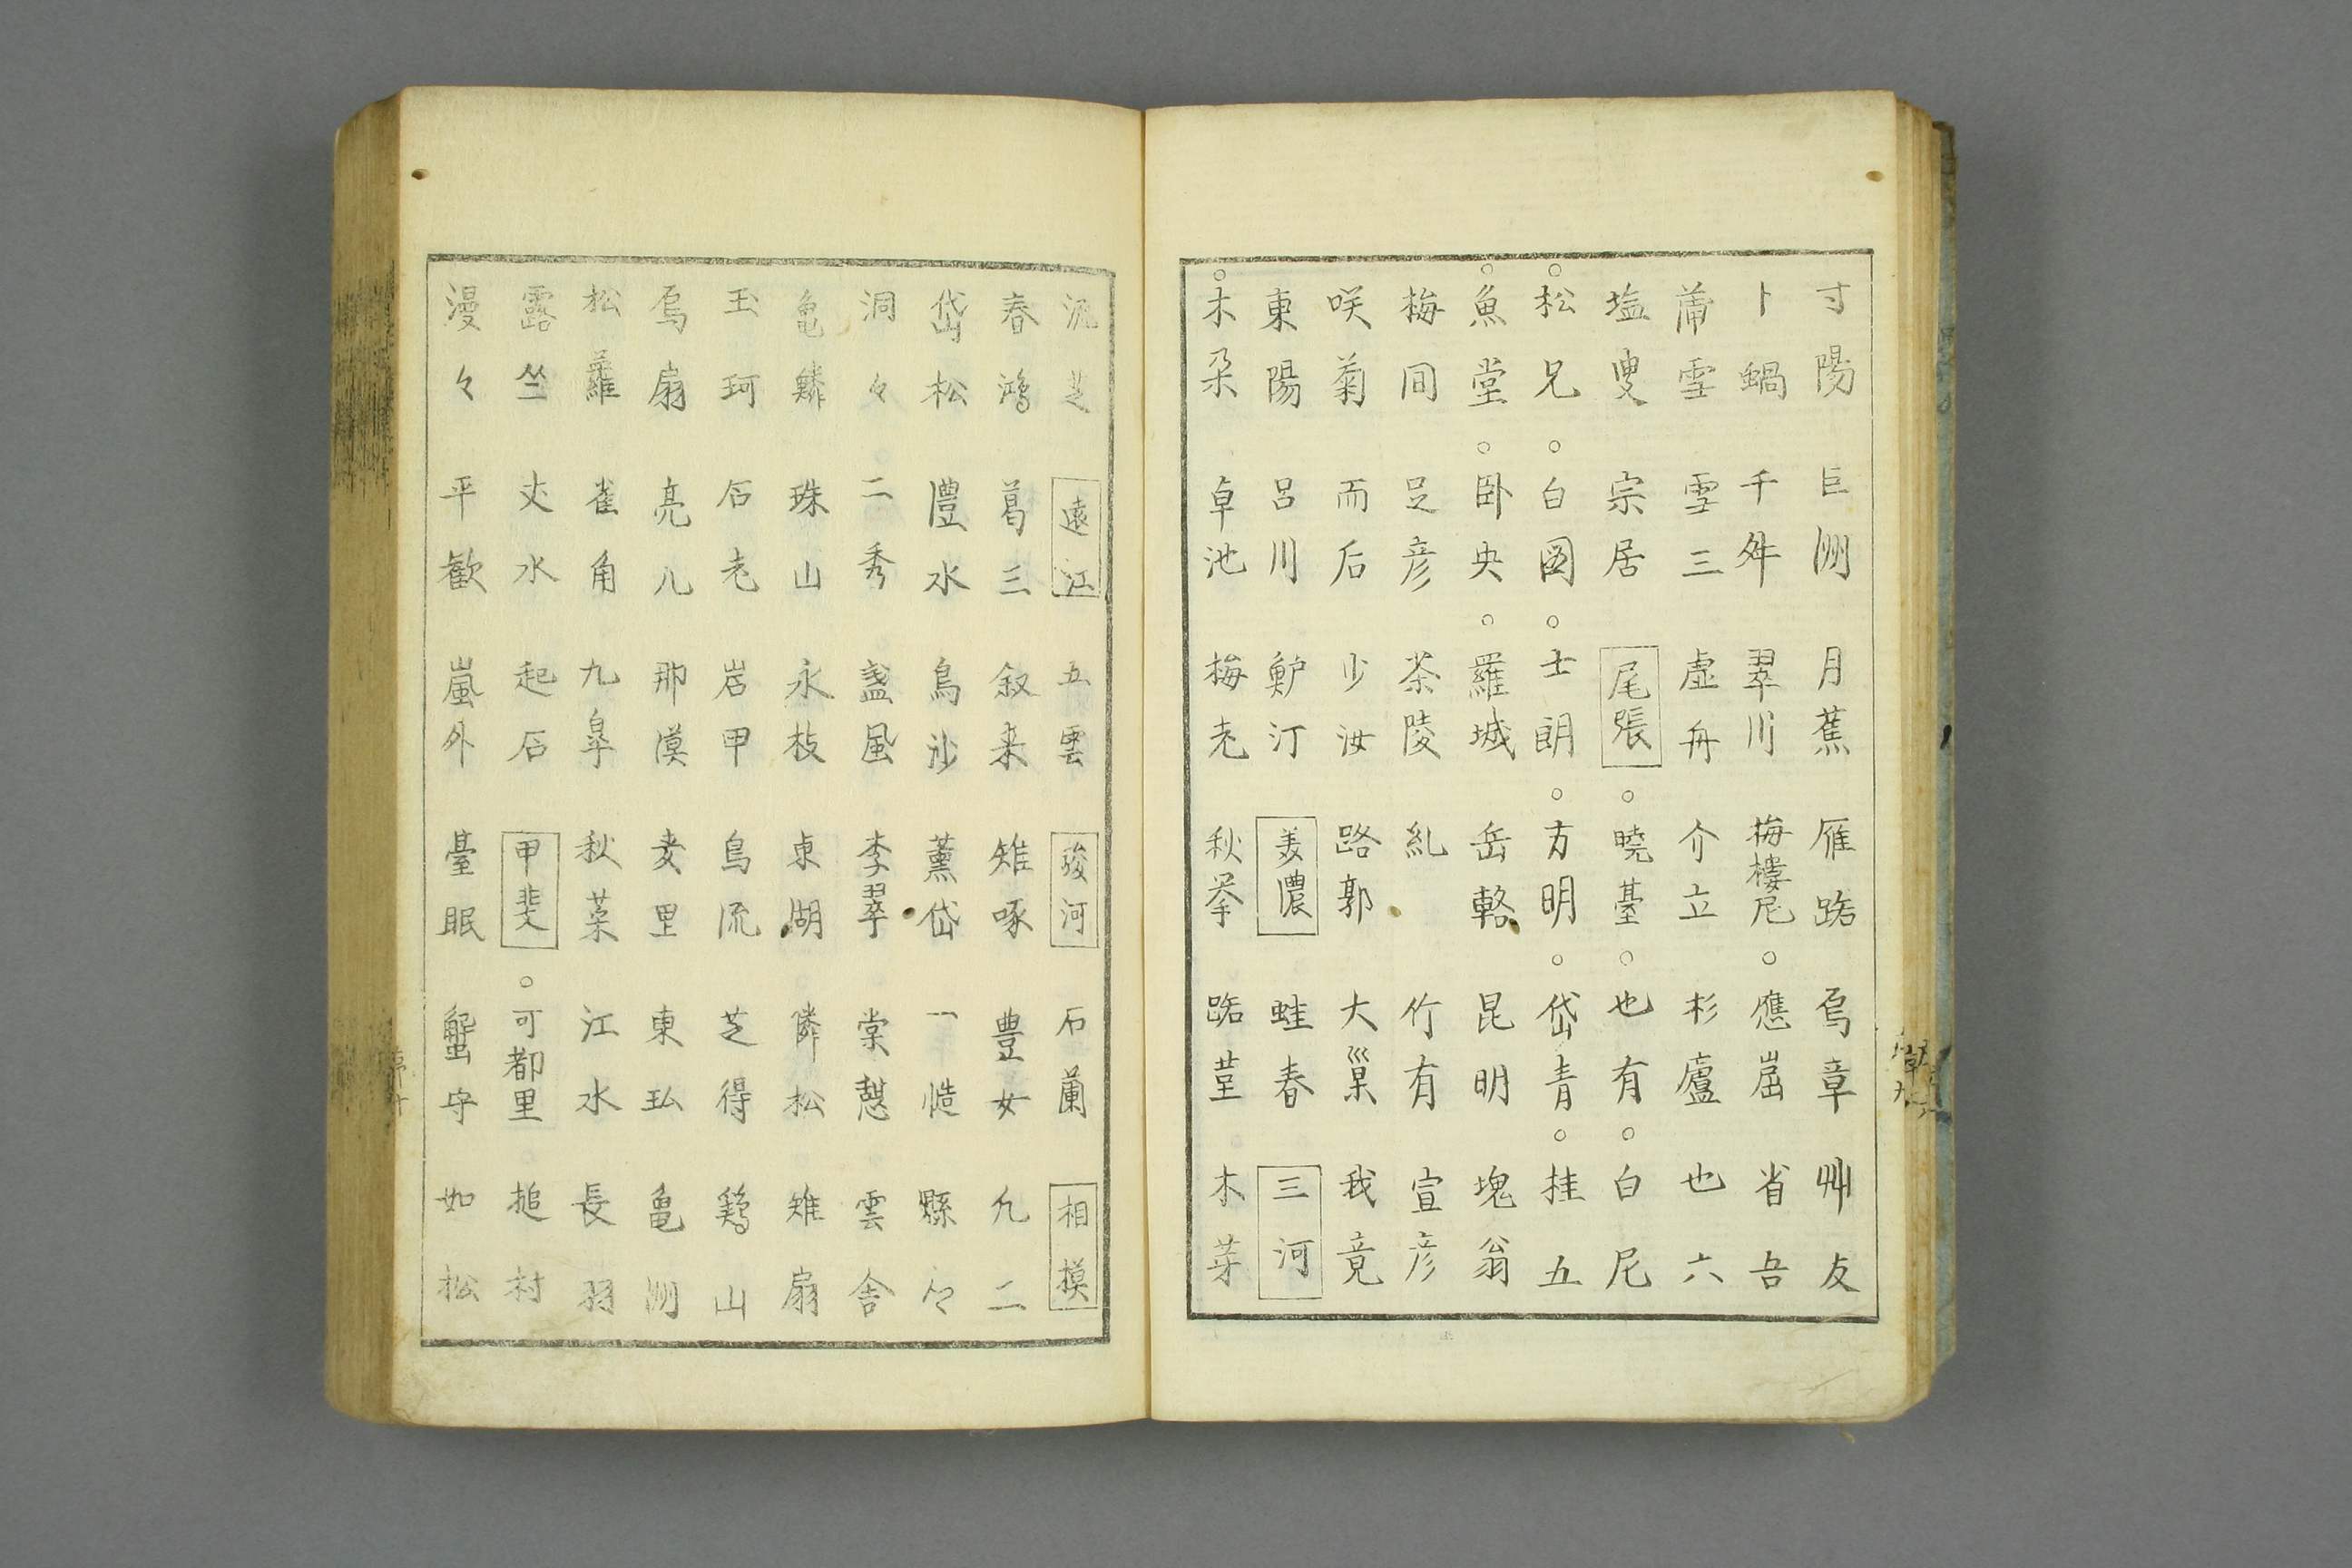 寸陽 巨洲 月蕉 雁路 烏章 艸友
卜蝸 千舛 翠川 梅樓尼 。應嵓 省吾
蒲雪 雪三 虚舟 介立 杉廬 也六
塩叟 宗居 尾張 。曉臺 。也有 。白尼
。松兄 。白図 。士朗 。方明 。岱青 。桂五
。魚堂 。卧央 。羅城 岳輅 昆明 塊翁
梅间 足彦 茶陵 乱 竹有 宣彦
咲菊 而后 少汝 路郭 大巢 我竟
東陽 呂川 鮕汀 美濃 蛙春 三河
。木朶 卓池 梅老 秋挙 踏茎 木芽
沉芝 遠江 五雲 駿河 石蘭 相模
春鴻 葛三 叙来 雉啄 豊女 九二
岱松 澧水 鳥沙 薫岱 一慥 縣々
洞々 二秀 盞風 李翠 棠慧 雲舎
亀鱗 珠山 永枝 東湖 隣松 雉扇
玉珂 石老 岩甲 鳥流 芝得 鶏山
烏扇 亮几 那漠 麦里 東㺩 亀洲
松蘿 雀角 九皐 秋菜 江水 長羽
露竺 丈水 起石 甲斐 。可都里 搥村
漫々 平歓 嵐外 臺眠 蟹守 如松